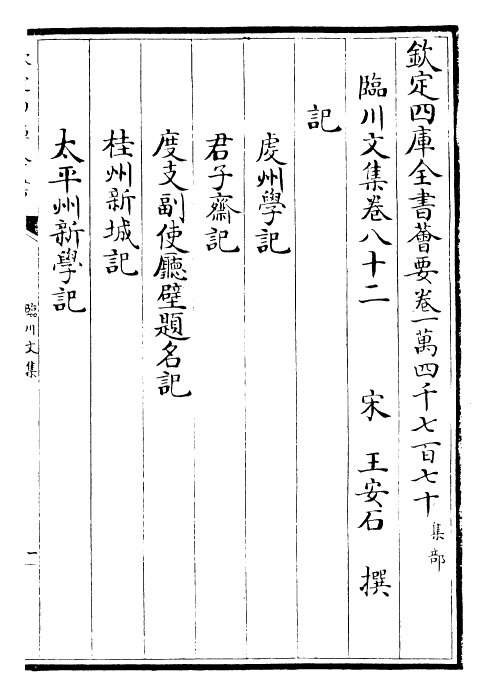 欽定四庫全書薈要卷一萬四千七百七十 集部
臨川文集卷八十二 宋 王安石 撰
記
虔州學記
君子齋記
度支副使廳壁題名記
桂州新城記
太平州新學記
臨川文集